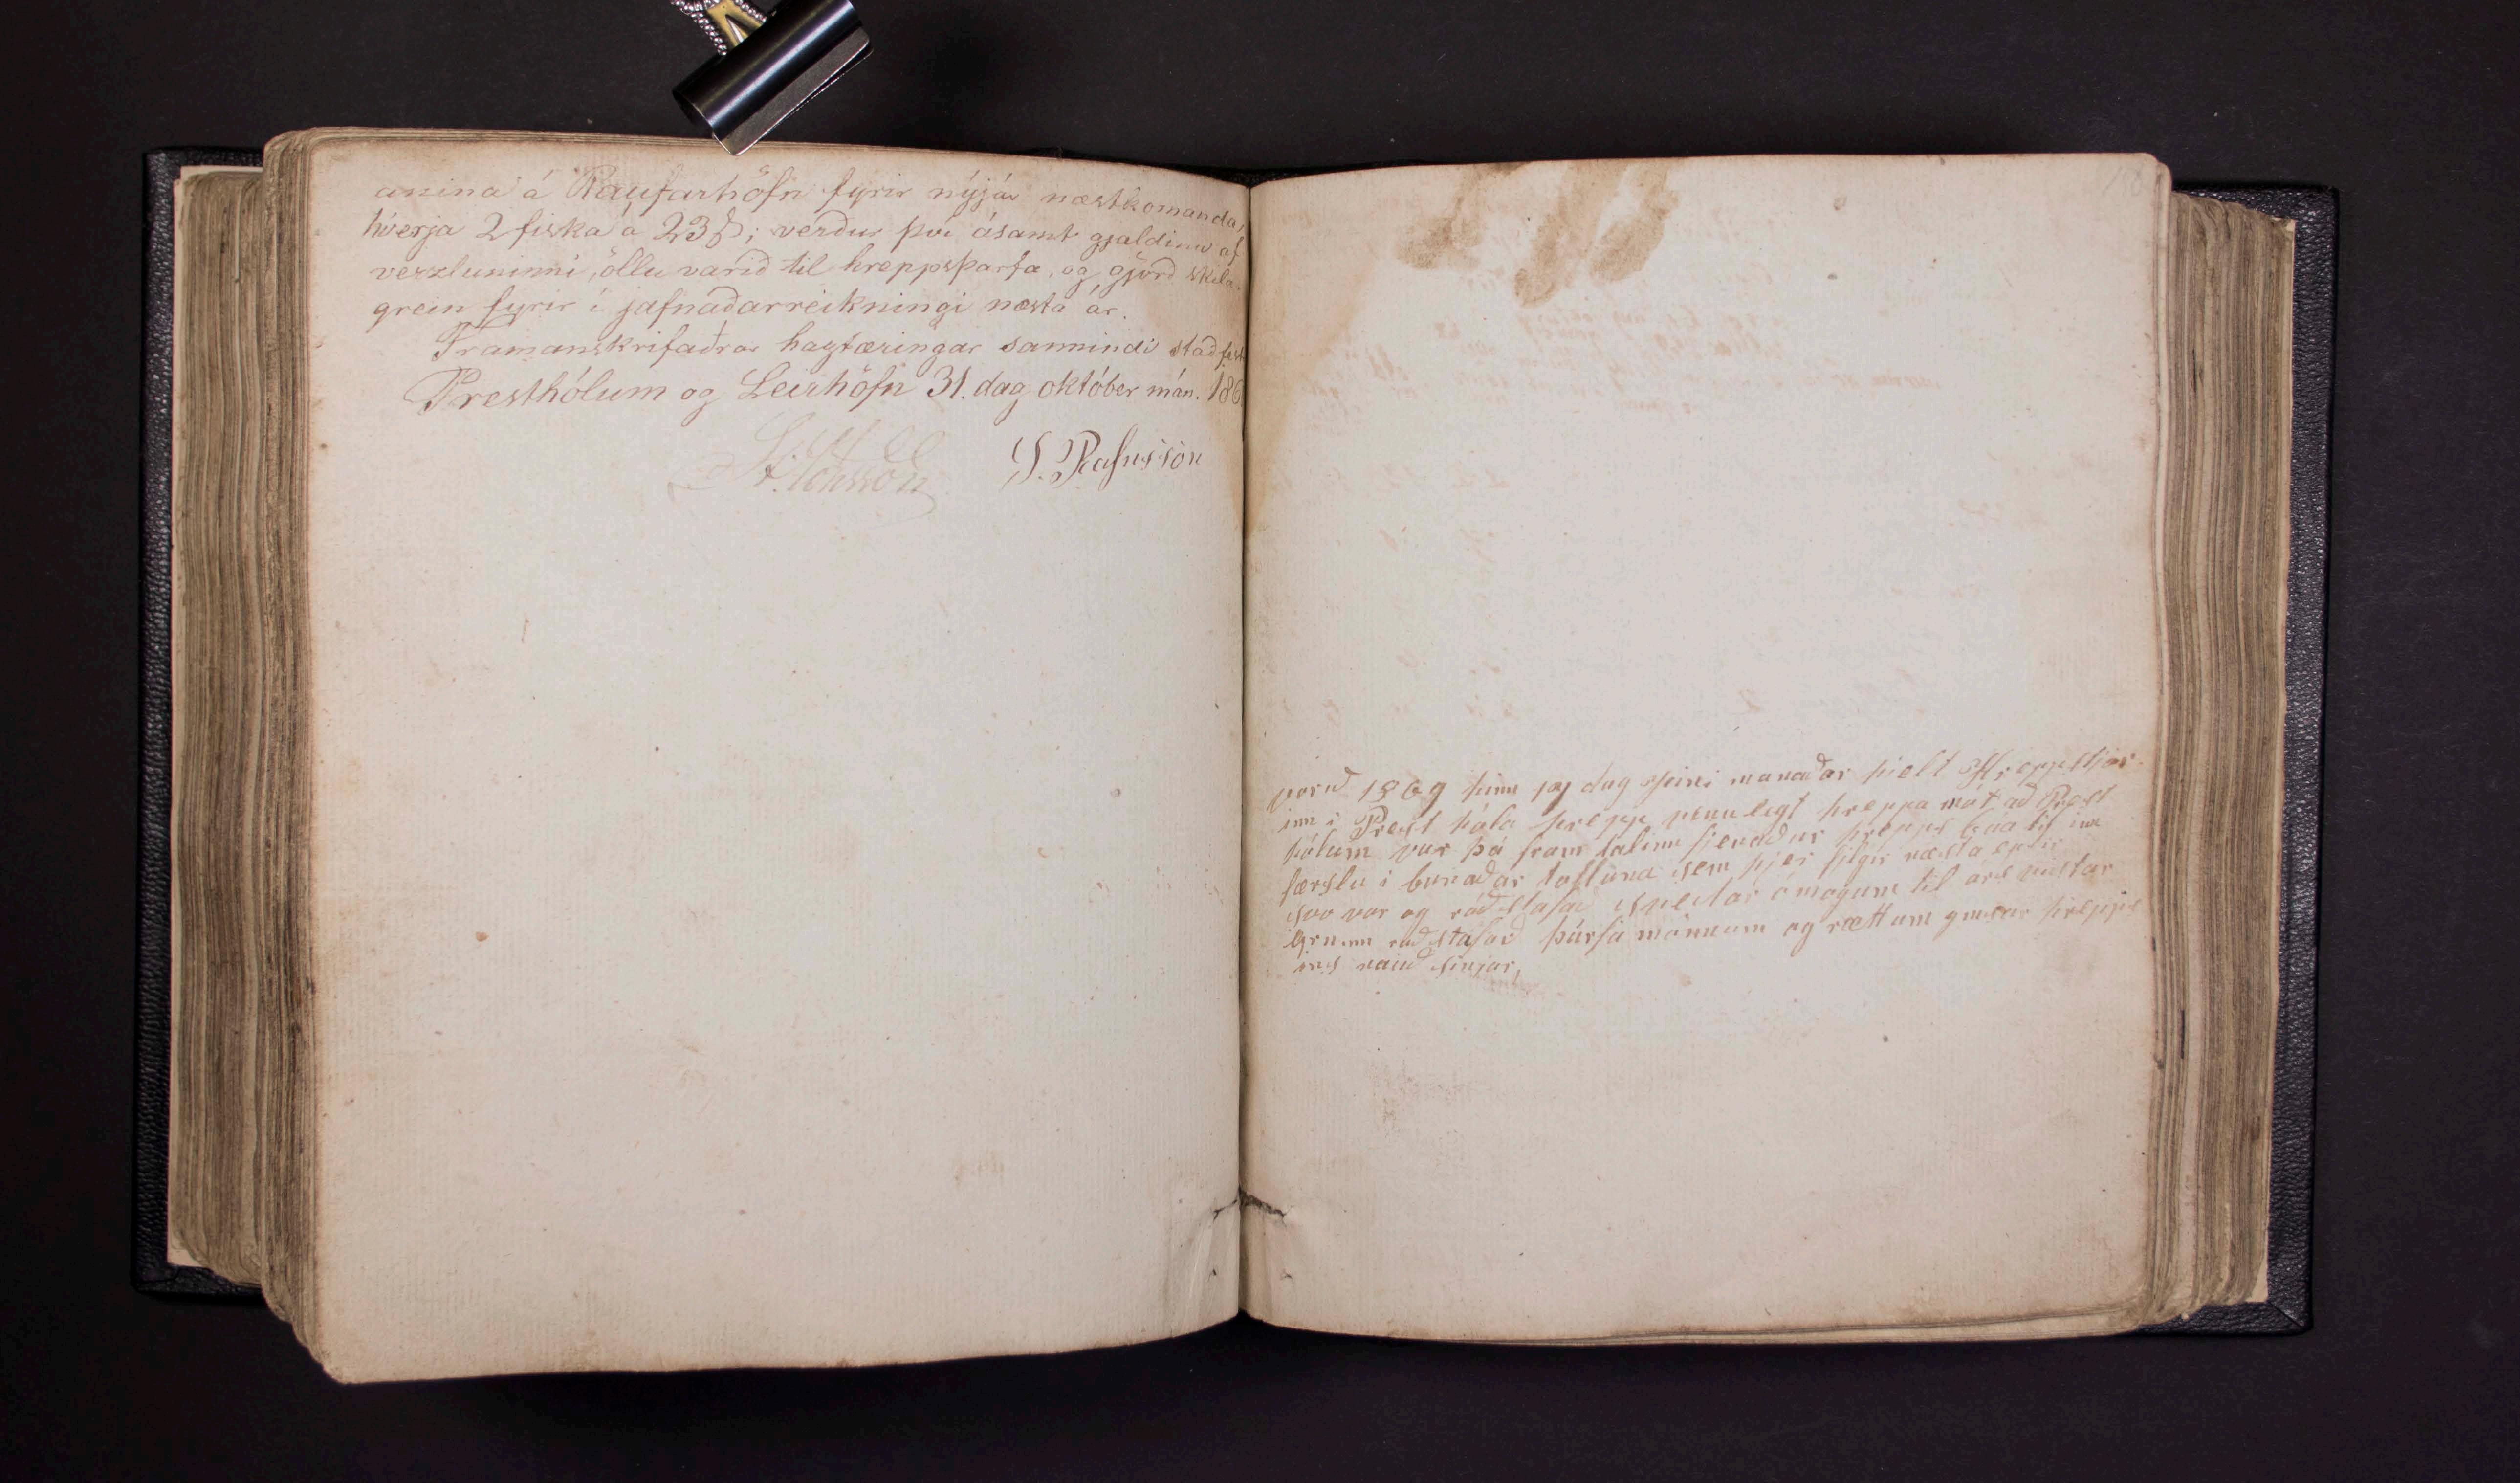 anina á Raufarhöfn fyrir nýjár næstkomanda,
hverja 2 fiska á 23 ß; verður því ásamt gjaldinu af
verzluninni, öllu varið til hreppsþarfa, og gjörð skila-
grein fyrir í jafnaðarreikningi næsta ár.
Framanskrifaðrar hagfæringar sannindi staðfest
Presthólum og Leirhöfn 31. dag október mán. 186
St. Jónsson J. Rafnsson
vorið 1869 hinn dag mánaðar hjelt Hreppstjór-
inn i Prest hóla hrepp venulegt hreppa mót að Prest
hólum var þá fram talinn fjenaður hrepps búa til inn
færslu i bunaðar tofluna sem hjer filgir næsta eptir
svo var og ráðstafað ómögum til árs vistar
ráðstafað þurfa mönnum og rættum hrepps
ins